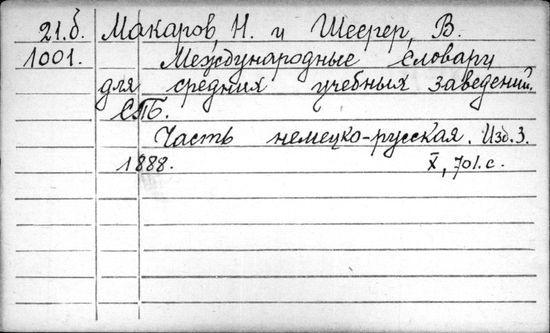 21.б. Макаров, Н. и Шеерер, В.
1001. Международные словари
для средних учебных заведений.
СПБ.
Часть немецко-русская. Изд. 3.
1888. X, 701. с.